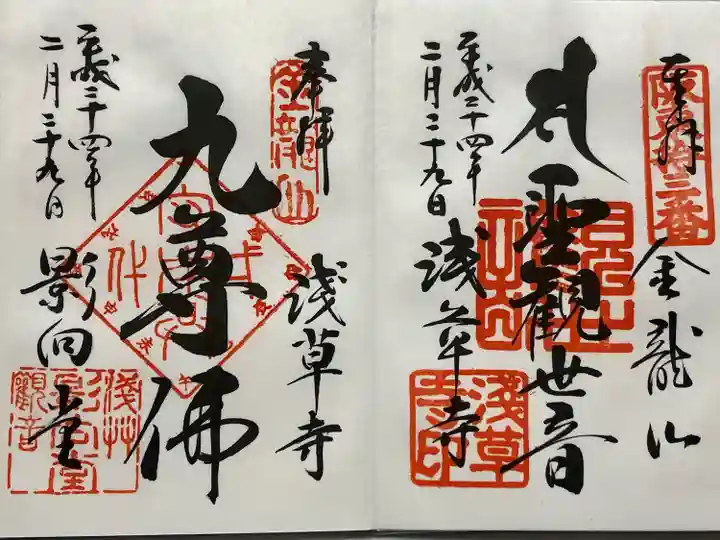 奉拝
坂東拾三番
金龍山
聖観世音
平成二十四年
二月二十九日
浅草寺
浅草寺印
奉拝
金龍山
浅草寺
九尊佛
平成二十四年
二月二十九日
影向堂
浅艸
影向堂
観音